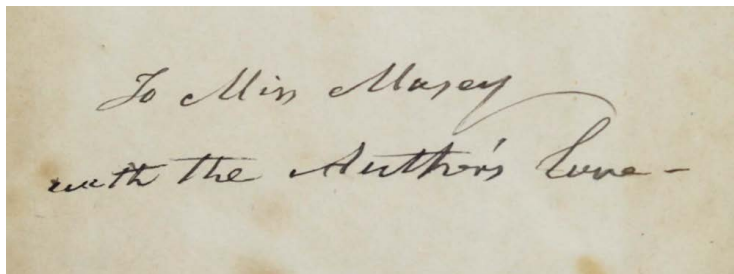 To Miss Masey
with the Author's love -